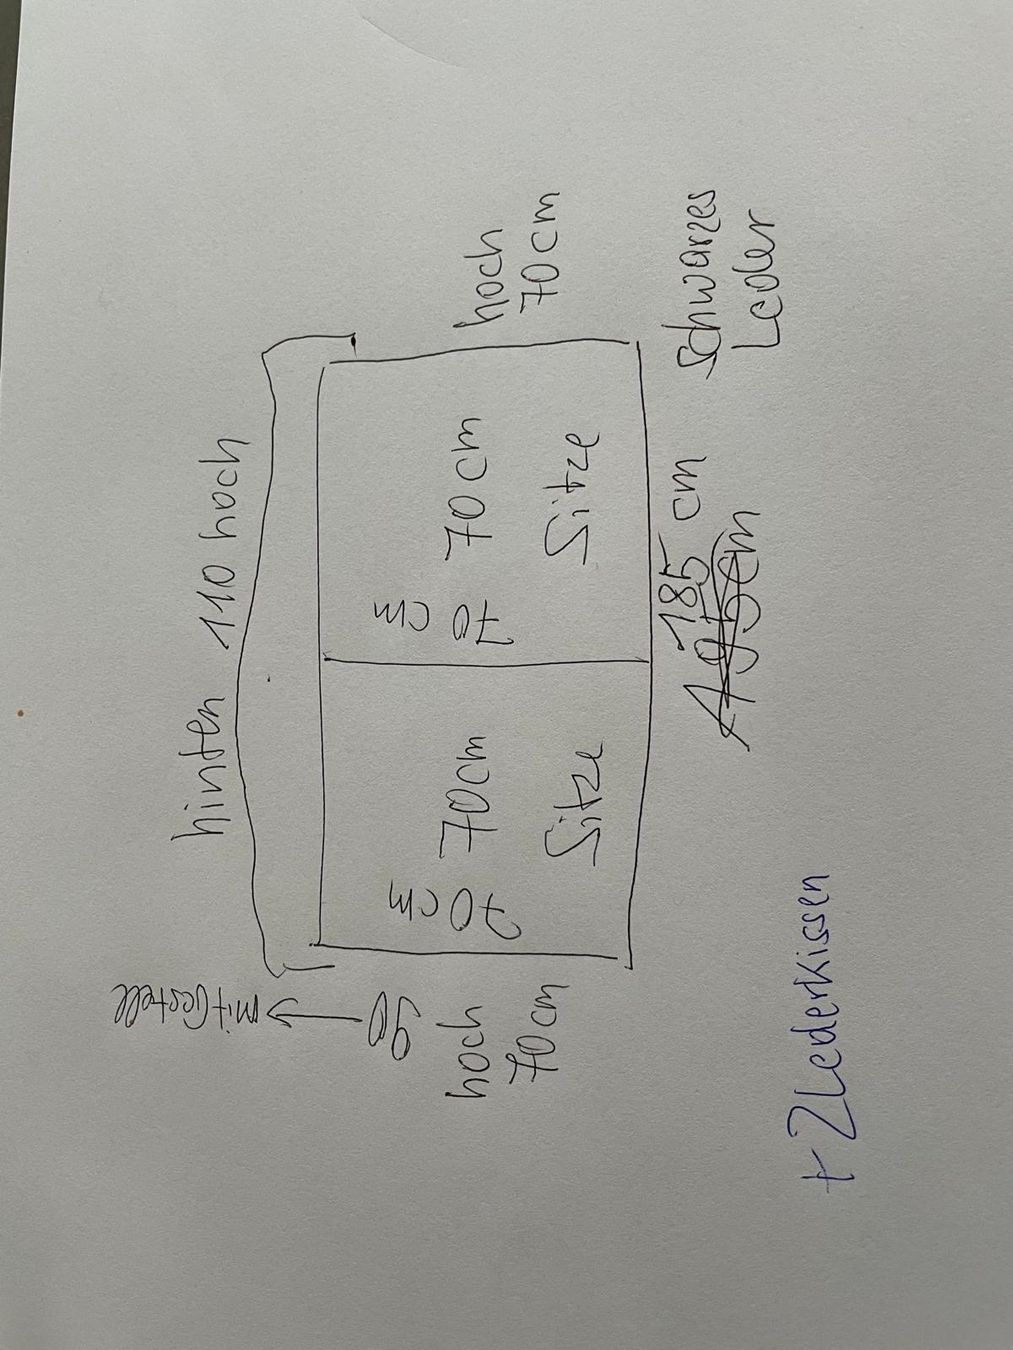 hinten 110 hoch
90
mit Gestell
hoch
70cm
70
cm
70cm
Sitze
70
cm
70cm
Sitze
hoch
70cm
185 cm
Schwarzes
Leder
+ 2 Lederkissen